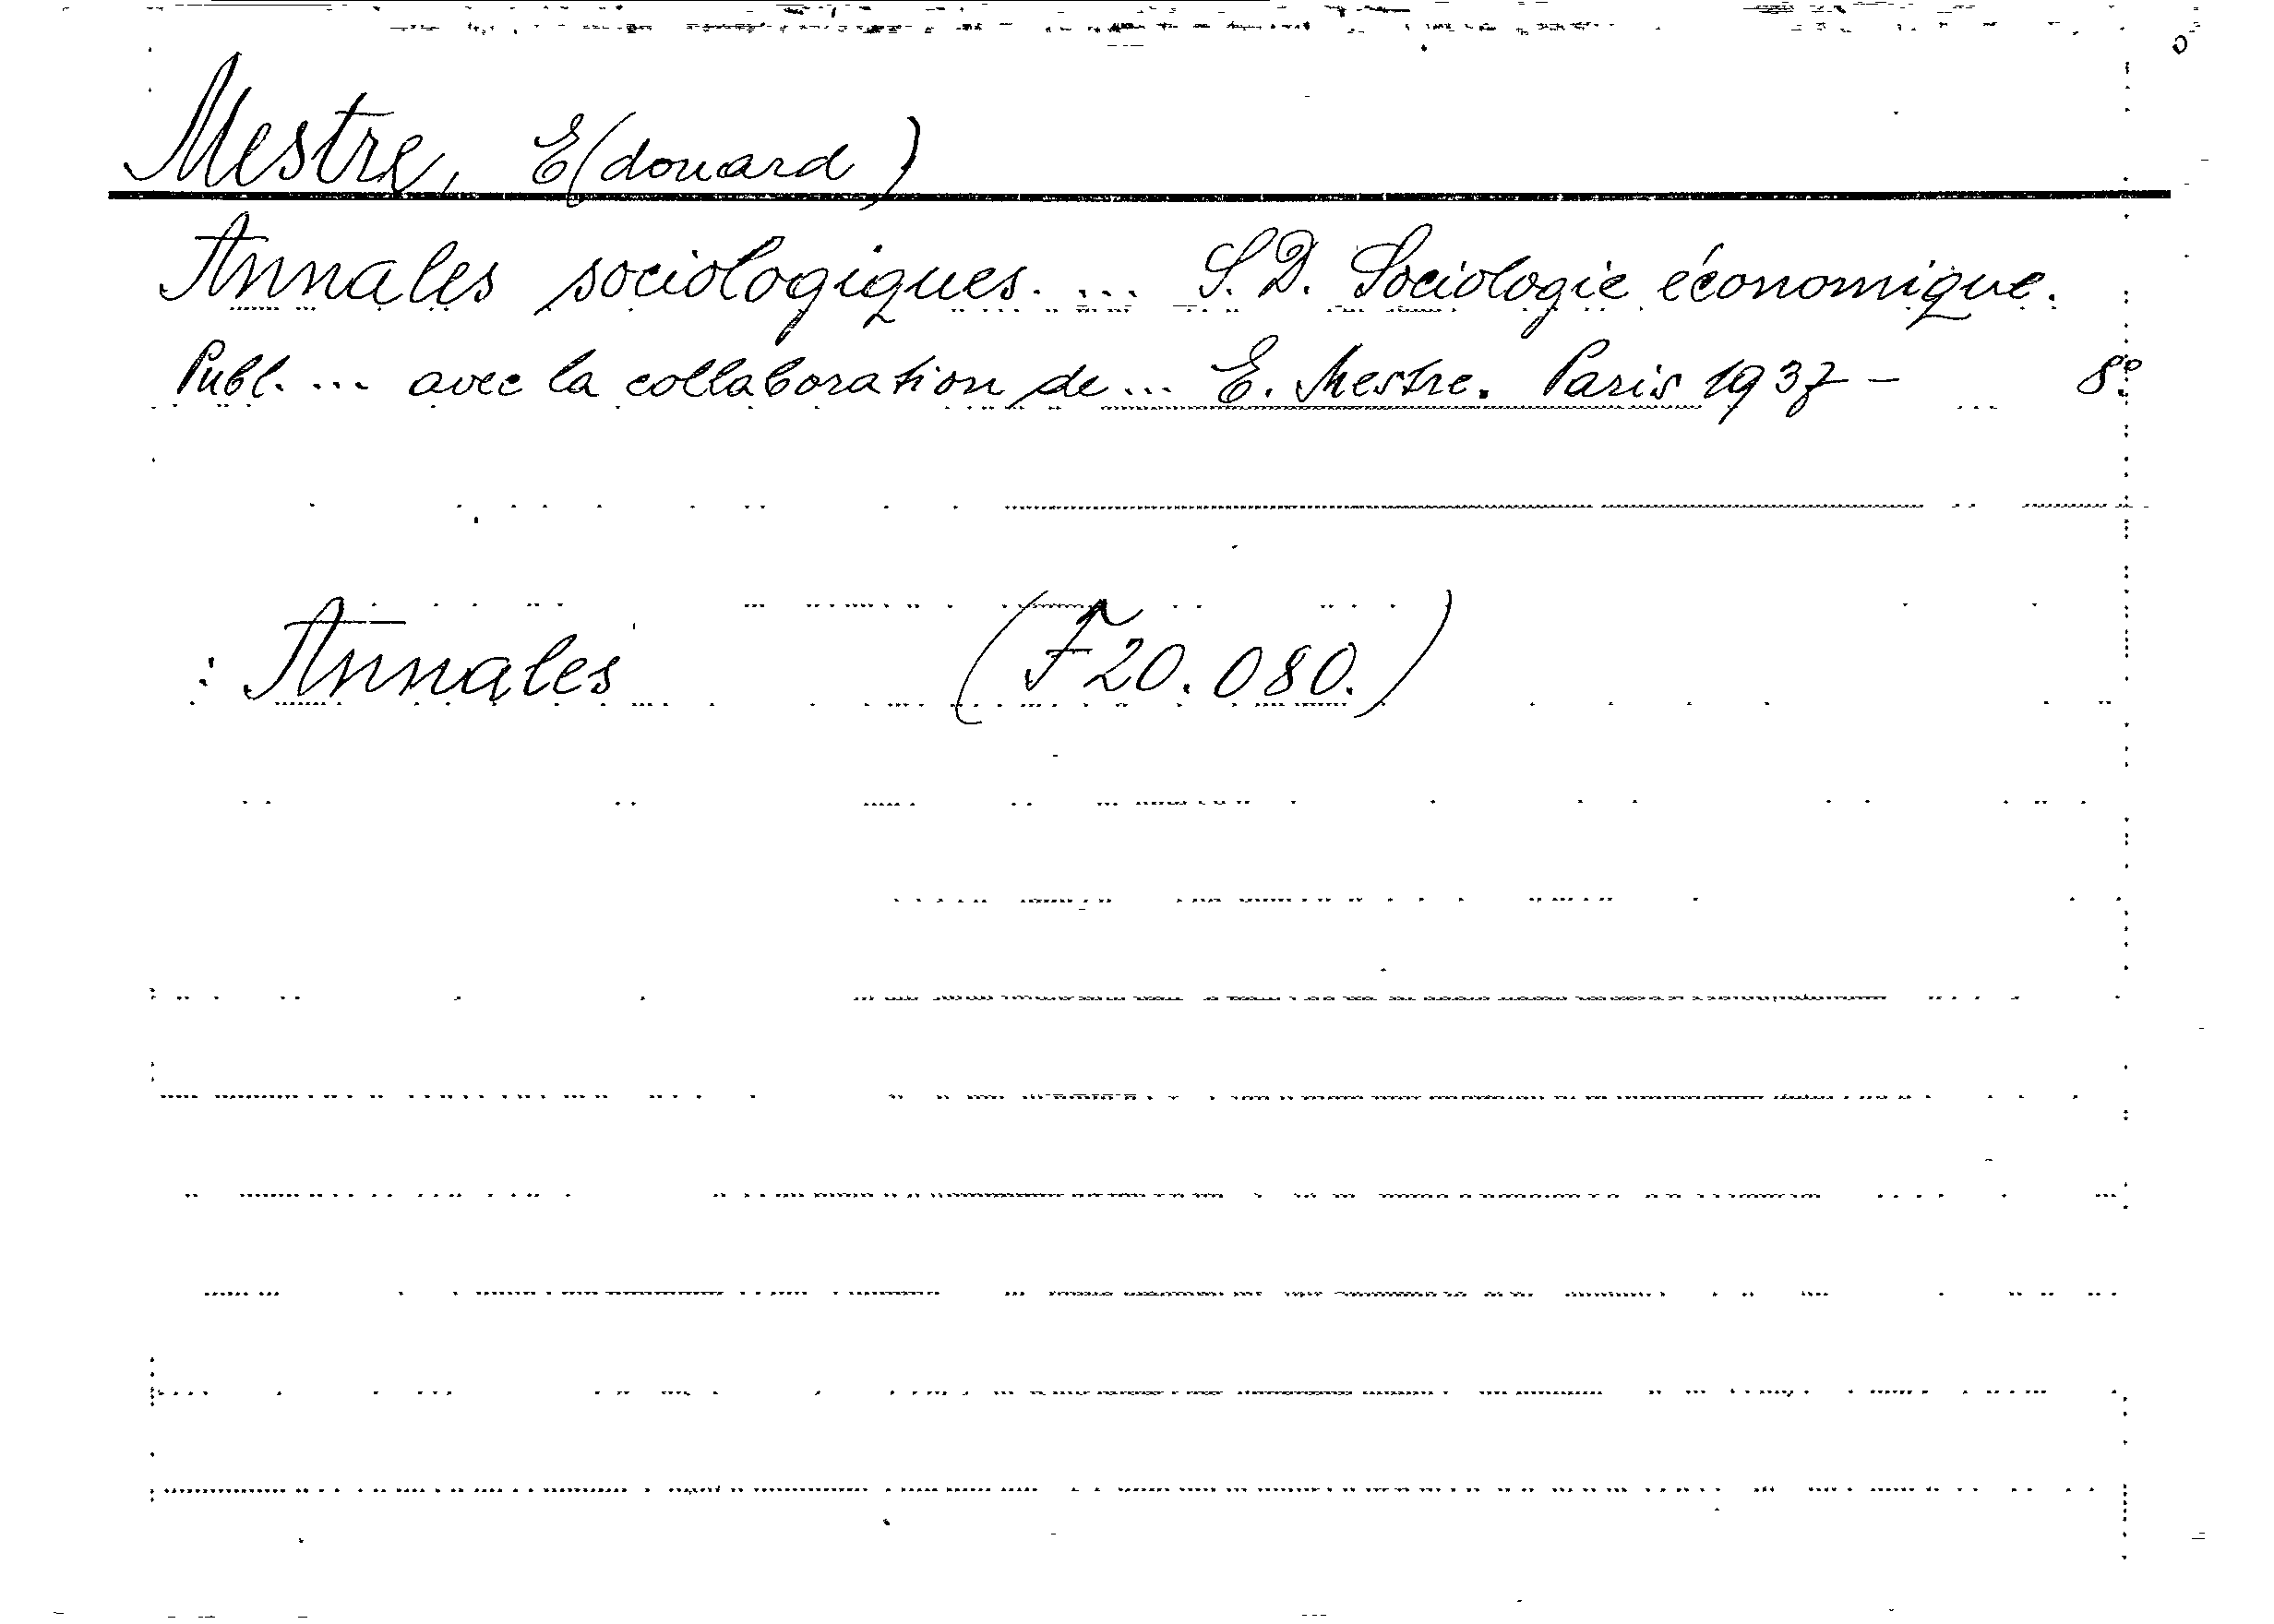 Mestre, E(douard)
Annales sociologiques. ... S.D. Sociologie économique.
Publ. ... avec la collaboration de ... E. Mestre. Paris 1937 - 8º
: Annales (F 20.080.)